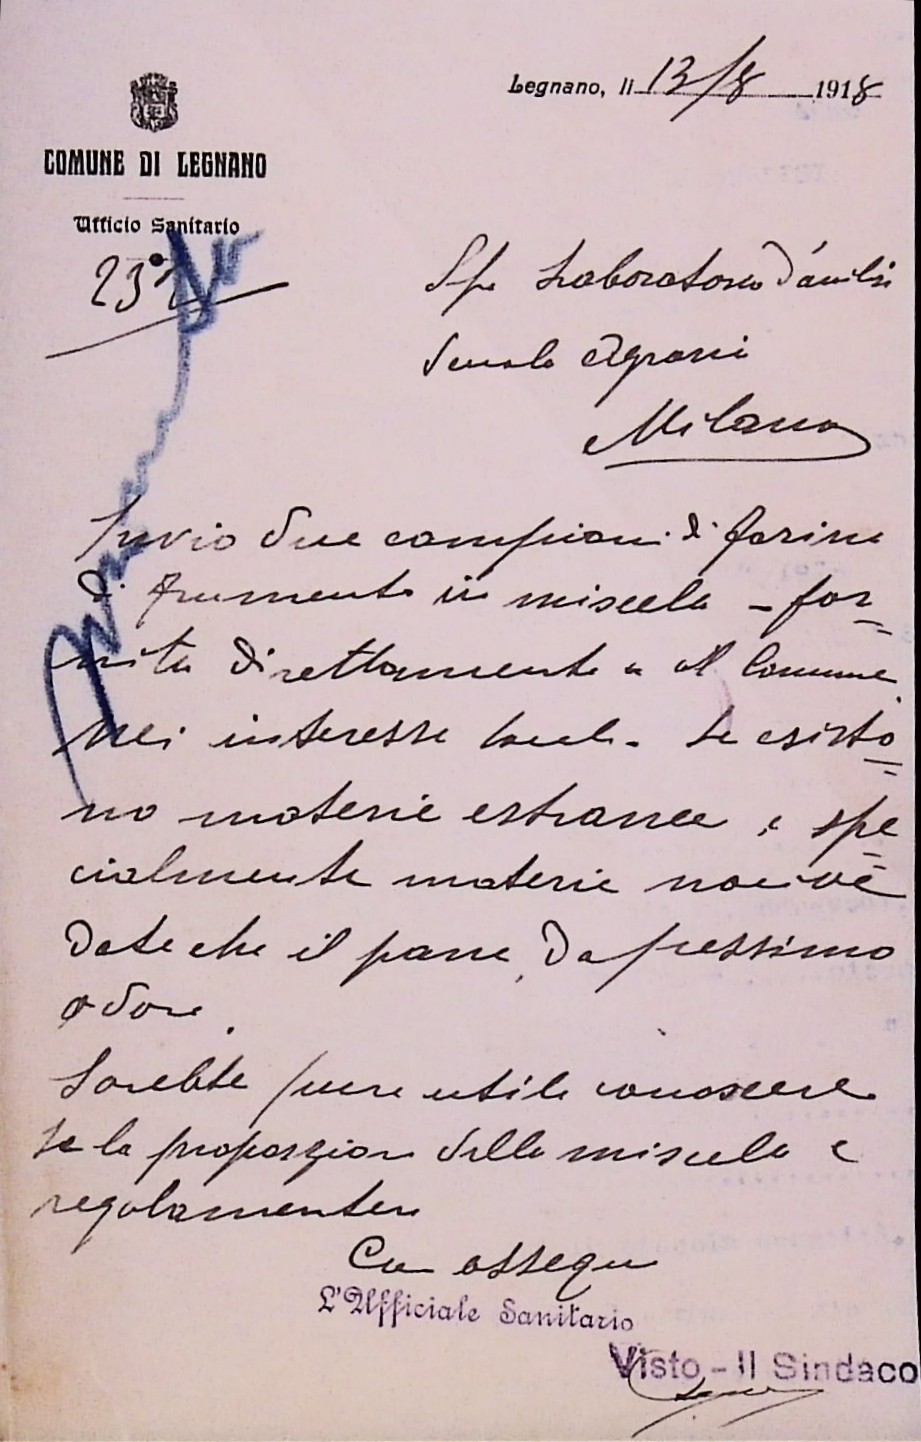 Legnano, li 13/8 1918
COMUNE DI LEGNANO
Ufficio Sanitario
Laboratorio D'analisi
Scuola Agraria
Milano
Invio due campioni di farina
di frumento in miscela - for=
nita direttamente a Comune
Nei interesse - Se esisto=
no materie estranee e spe=
cialmente materie nocive
Dato che il pane, Da pessimo
odore.
Sarebbe pure utile conoscere
se la proporzion della miscela e
regolamentare
Con ossequi
L'Ufficiale Sanitario
Visto - Il Sindaco